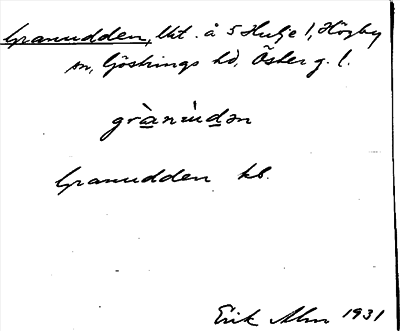 Granudden, lht. å S Hulje 1, Högby
sn, Göstrings hd, Österg. l.
grànúdən
Granudden kb.
Erik Alm 1931